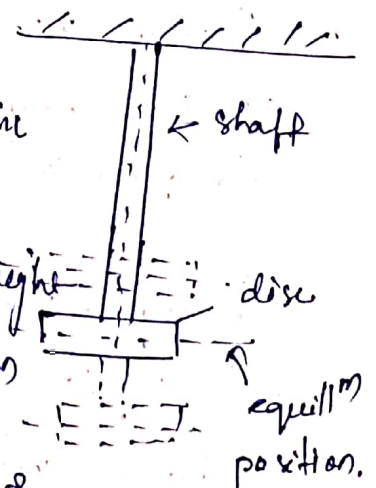 ← shaft
eight
disc
equill^m
position.